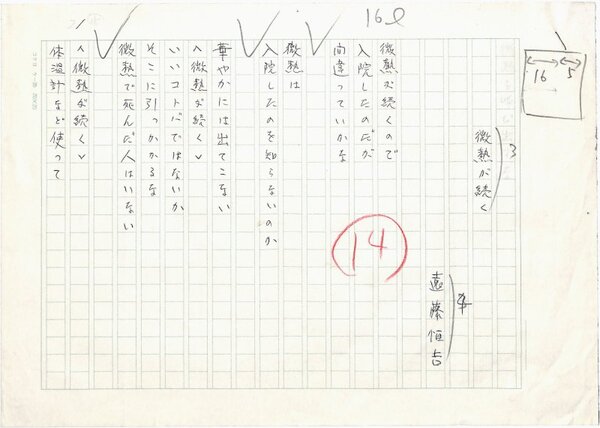 16ℓ
16
5
3
微熱が続く
遠藤恒吉
14
微熱が続くので
入院したのだが
間違っていかな
微熱は
入院したのを知らないのか
華やかには出てこない
<微熱が続く>
いいコトバではないか
そこに引っかかるな
微熱で死んだ人はいない
<微熱が続く>
体温計など使って